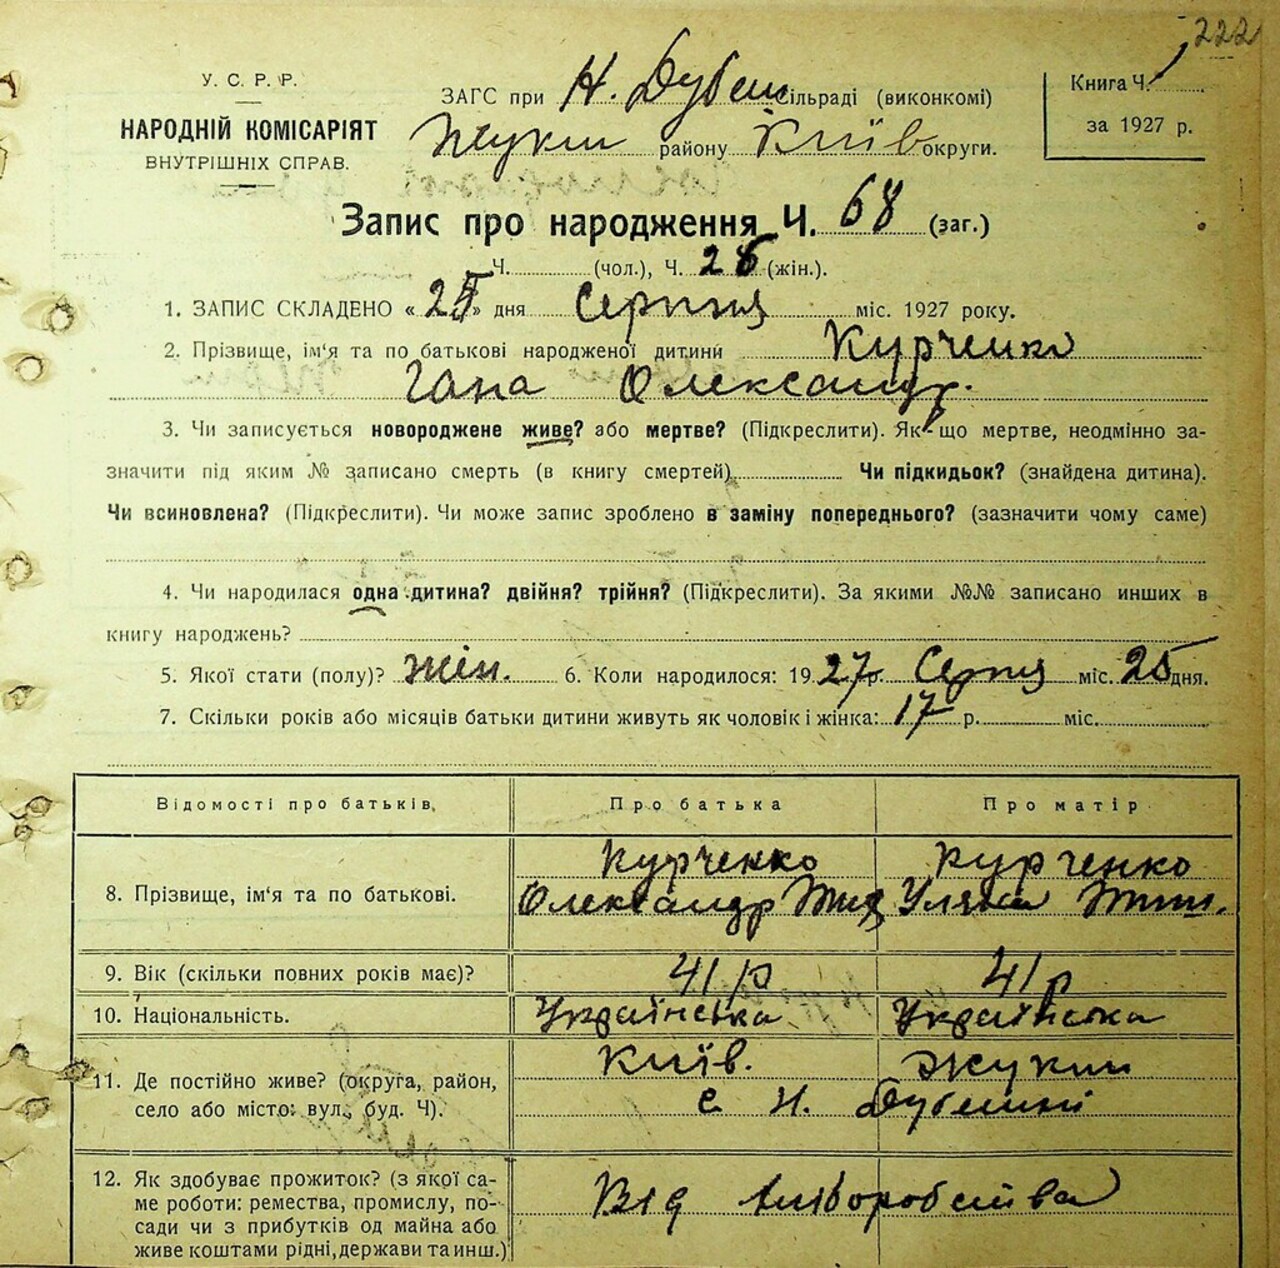 222
У. С. Р. Р.
НАРОДНІЙ КОМІСАРІЯТ
ВНУТРІШНІХ СПРАВ.
ЗАГС при Н. Дубеш. сільраді (виконкомі)
Жукин району Київ округи.
Книга Ч. 1
за 1927 р.
Запис про народження Ч. 68 (заг.)
Ч. (чол.), Ч. 28 (жін.).
1. ЗАПИС СКЛАДЕНО « » дня Серпня міс. 1927 року.
2. Прізвище, ім‘я та по батькові народженої дитини Курченко
Гана Олександр.
3. Чи записується новороджене живе? або мертве? (Підкреслити). Як-що мертве, неодмінно за-
значити під яким № записано смерть (в книгу смертей) Чи підкидьок? (знайдена дитина).
Чи всиновлена? (Підкреслити). Чи може запис зроблено в заміну попереднього? (зазначити чому саме)
4. Чи народилася одна дитина? двійня? трійня? (Підкреслити). За якими №№ записано инших в
книгу народжень?
5. Якої стати (полу)? жін. 6. Коли народилося: 1927 р. Серпня міс. 25 дня.
7. Скільки років або місяців батьки дитини живуть як чоловік і жінка: 17 р. міс.
Відомості про батьків. Про батька Про матір
8. Прізвище, ім‘я та по батькові.
Курченко Курченко
Олександр Уляна
9. Вік (скільки повних років має)? 41 р 41 р
10. Національність. Українська Українська
11. Де постійно живе? (округа, район,
село або місто: вул., буд. Ч).
Київ. Жукин
с. Н. Дубешні
12. Як здобуває прожиток? (з якої са-
ме роботи: ремества, промислу, по-
сади чи з прибутків од майна або
живе коштами рідні, держави та инш.)
Від хліборобства